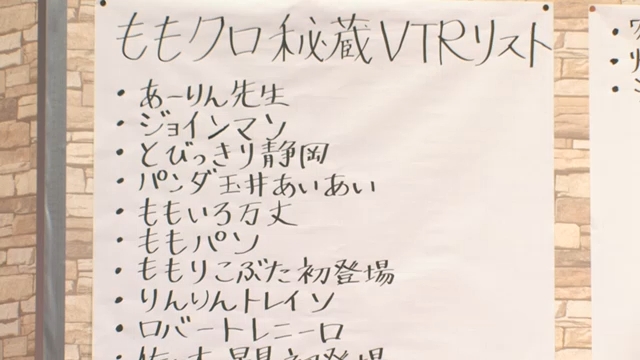 ももクロ秘蔵VTRリスト
・あーりん先生
・ジョインマン
・とびっきり静岡
・パンダ玉井あいあい
・ももいろ万丈
・ももパン
・ももりこぶた初登場
・りんりんトレイン
・ロバートレニーロ